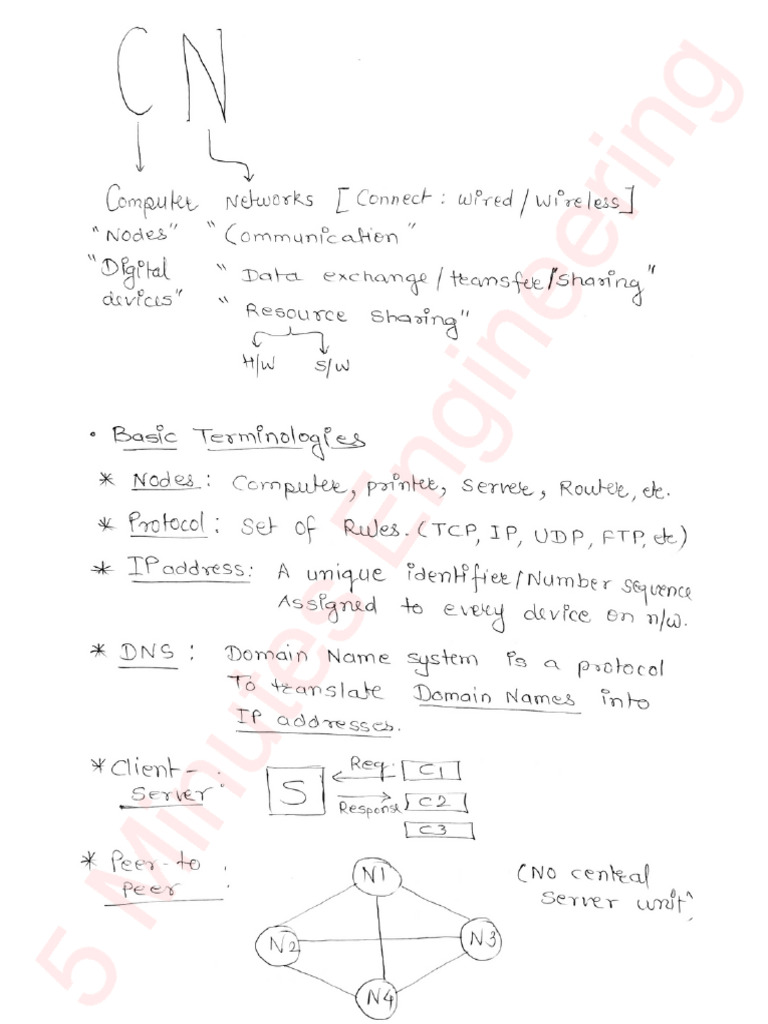 CN
Computer Networks [Connect: wired/wireless]
"Nodes" "Communication"
"Digital devices" "Data exchange/transfer/sharing"
"Resource sharing"
H/W S/W
• Basic Terminologies
* Nodes: Computer, printer, server, Router, etc.
* Protocol: Set of Rules. (TCP, IP, UDP, FTP, etc)
* IP address: A unique identifier/Number sequence
Assigned to every device on n/w.
* DNS: Domain Name system is a protocol
To translate Domain Names into
IP addresses.
* Client-
Server:
S
Req.
Response
C1
C2
C3
* Peer-to
Peer:
N1
N2
N3
N4
(No central
server unit)
5 Minutes Engineering